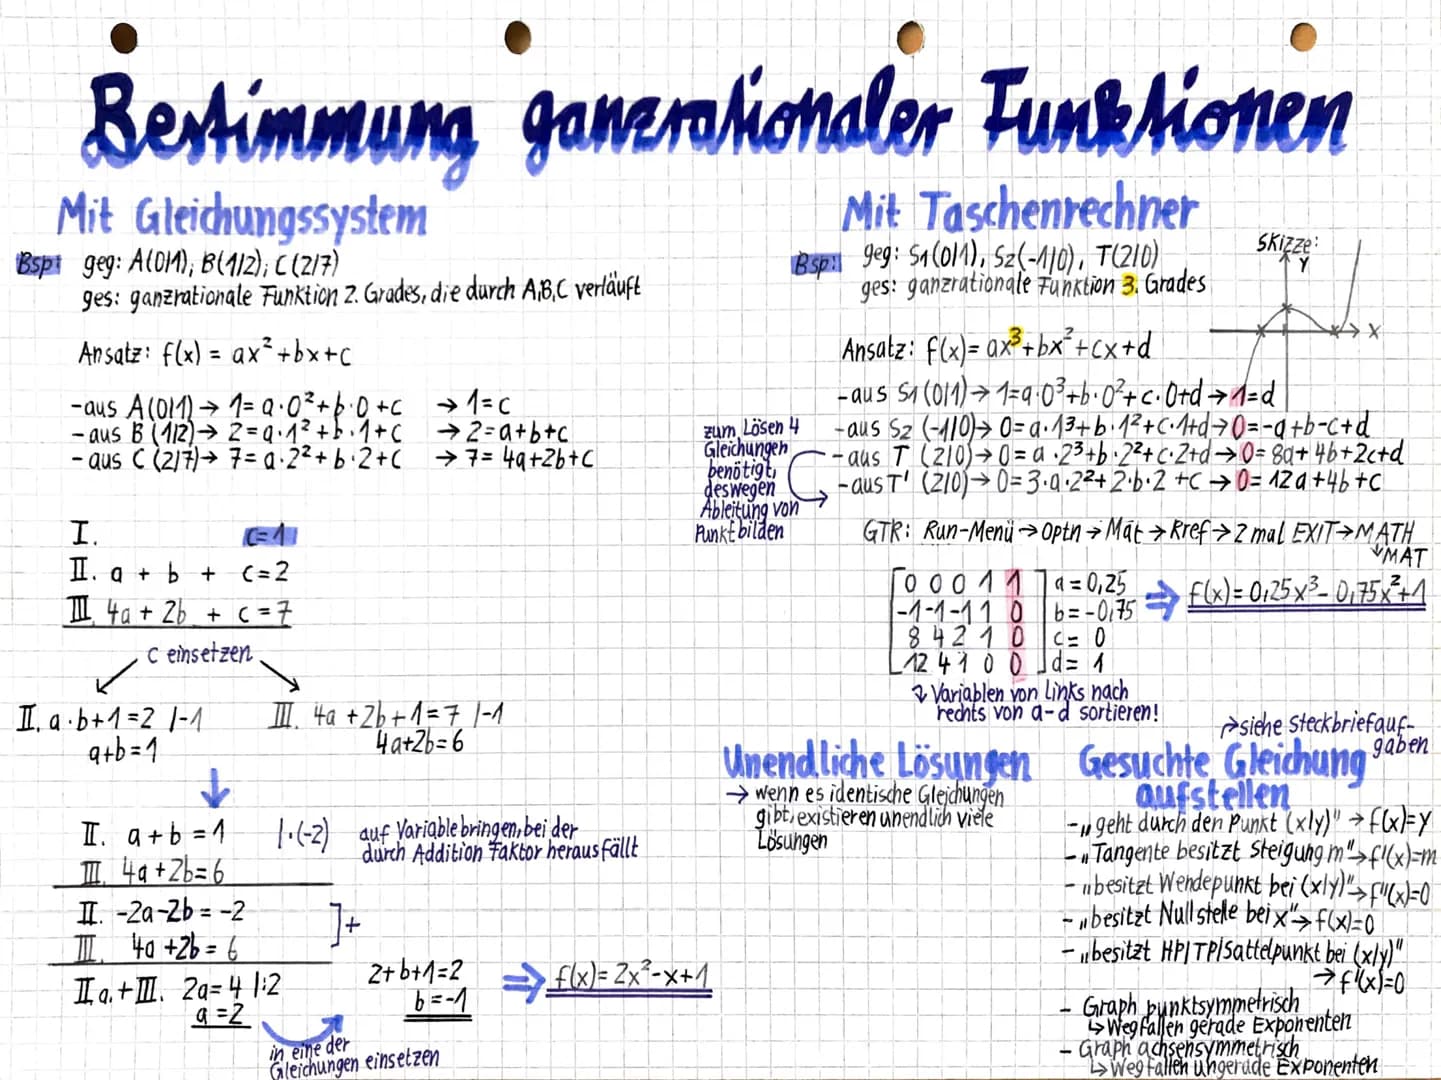 Bestimmung ganzrationaler Funktionen
Mit Gleichungssystem
Bsp: geg: A(0|1); B(1|2); C(2|7)
ges: ganzrationale Funktion 2. Grades, die durch A,B,C verläuft
Ansatz: f(x) = ax² + bx + c
- aus A(0|1) → 1 = a·0² + b·0 + c → 1 = c
- aus B (1|2) → 2 = a·1² + b·1 + c → 2 = a+b+c
- aus C (2|7) → 7 = a·2² + b·2 + c → 7 = 4a+2b+c
I. c=1
II. a + b + c = 2
III. 4a + 2b + c = 7
c einsetzen
II. a·b+1=2 |-1
a+b=1
III. 4a+2b+1=7 |-1
4a+2b=6
II. a + b = 1 |·(-2)
III. 4a+2b=6
auf Variable bringen, bei der
durch Addition Faktor heraus fällt
II. -2a-2b = -2
III. 4a+2b = 6
]+
IIa.+III. 2a=4 |:2
a=2
in eine der
Gleichungen einsetzen
2+b+1=2
b=-1
⇒ f(x) = 2x²-x+1
Mit Taschenrechner
Bsp: geg: S1(0|1), S2(-1|0), T(2|0)
ges: ganzrationale Funktion 3. Grades
Skizze:
Y
X
Ansatz: f(x) = ax³+bx²+cx+d
- aus S1(0|1) → 1=a·0³+b·0²+c·0+d → 1=d
- aus S2 (-1|0) → 0=a·1³+b·1²+c·1+d → 0=-a+b-c+d
- aus T (2|0) → 0=a·2³+b·2²+c·2+d → 0=8a+4b+2c+d
- aus T' (2|0) → 0=3·a·2²+2·b·2+c → 0=12a+4b+c
zum Lösen 4
Gleichungen
benötigt,
deswegen
Ableitung von
Punkt bilden
GTR: Run-Menü → Optn → Mat → Rref → 2 mal EXIT → MATH
↓MAT
0 0 0 1 1 a = 0,25
-1 -1 -1 1 0 b = -0,75
8 4 2 1 0 c = 0
12 4 1 0 0 d = 1
⇒ f(x) = 0,25x³ - 0,75x² + 1
Variablen von links nach
rechts von a-d sortieren!
Unendliche Lösungen
→ wenn es identische Gleichungen
gibt, existieren unendlich viele
Lösungen
→ siehe Steckbriefauf-
gaben
Gesuchte Gleichung
aufstellen
- „geht durch den Punkt (x|y)" → f(x)=y
- „Tangente besitzt Steigung m" → f'(x)=m
- „besitzt Wendepunkt bei (x|y)" → f''(x)=0
- „besitzt Nullstelle bei x" → f(x)=0
- „besitzt HP|TP|Sattelpunkt bei (x|y)"
→ f'(x)=0
- Graph punktsymmetrisch
↳ Wegfallen gerade Exponenten
- Graph achsensymmetrisch
↳ Wegfallen ungerade Exponenten